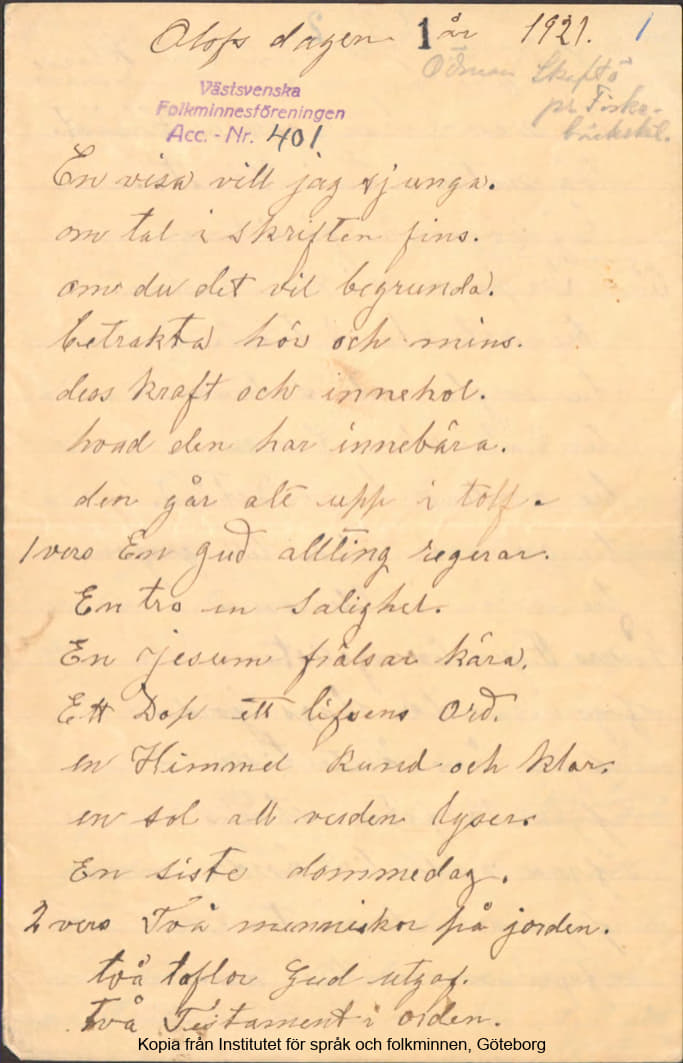 Olofs dagen 1 år 1921. 1
Västsvenska
Folkminnesföreningen
Acc. - Nr. 401
Ödman Skaftö
pr Fiske-
bäckskil.
En visa vill jag sjunga.
om tal i skriften fins.
om du det vil begrunda.
betrakta hör och mins.
dess kraft och innehol.
hvad den har innebära.
den går alt upp i tolf.
1 vers En gud allting regerar.
En tro en Salighet.
En jesum frälsar kära.
Ett Dop ett lifsens Ord.
en Himmel Rund och klar.
en sol all verden lyser.
En siste dommedag.
2 vers Två menniskor på jorden.
två taflor Gud utgaf.
två Testament i orden.
Kopia från Institutet för språk och folkminnen, Göteborg